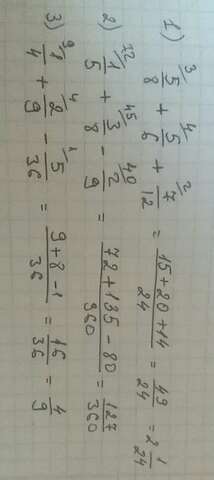 1) 5/8 + 5/6 + 7/12 = (15+20+14)/24 = 49/24 = 2 1/24
2) 1/5 + 3/8 - 2/9 = (72+135-80)/360 = 127/360
3) 1/4 + 2/9 - 5/36 = (9+8-1)/36 = 16/36 = 4/9